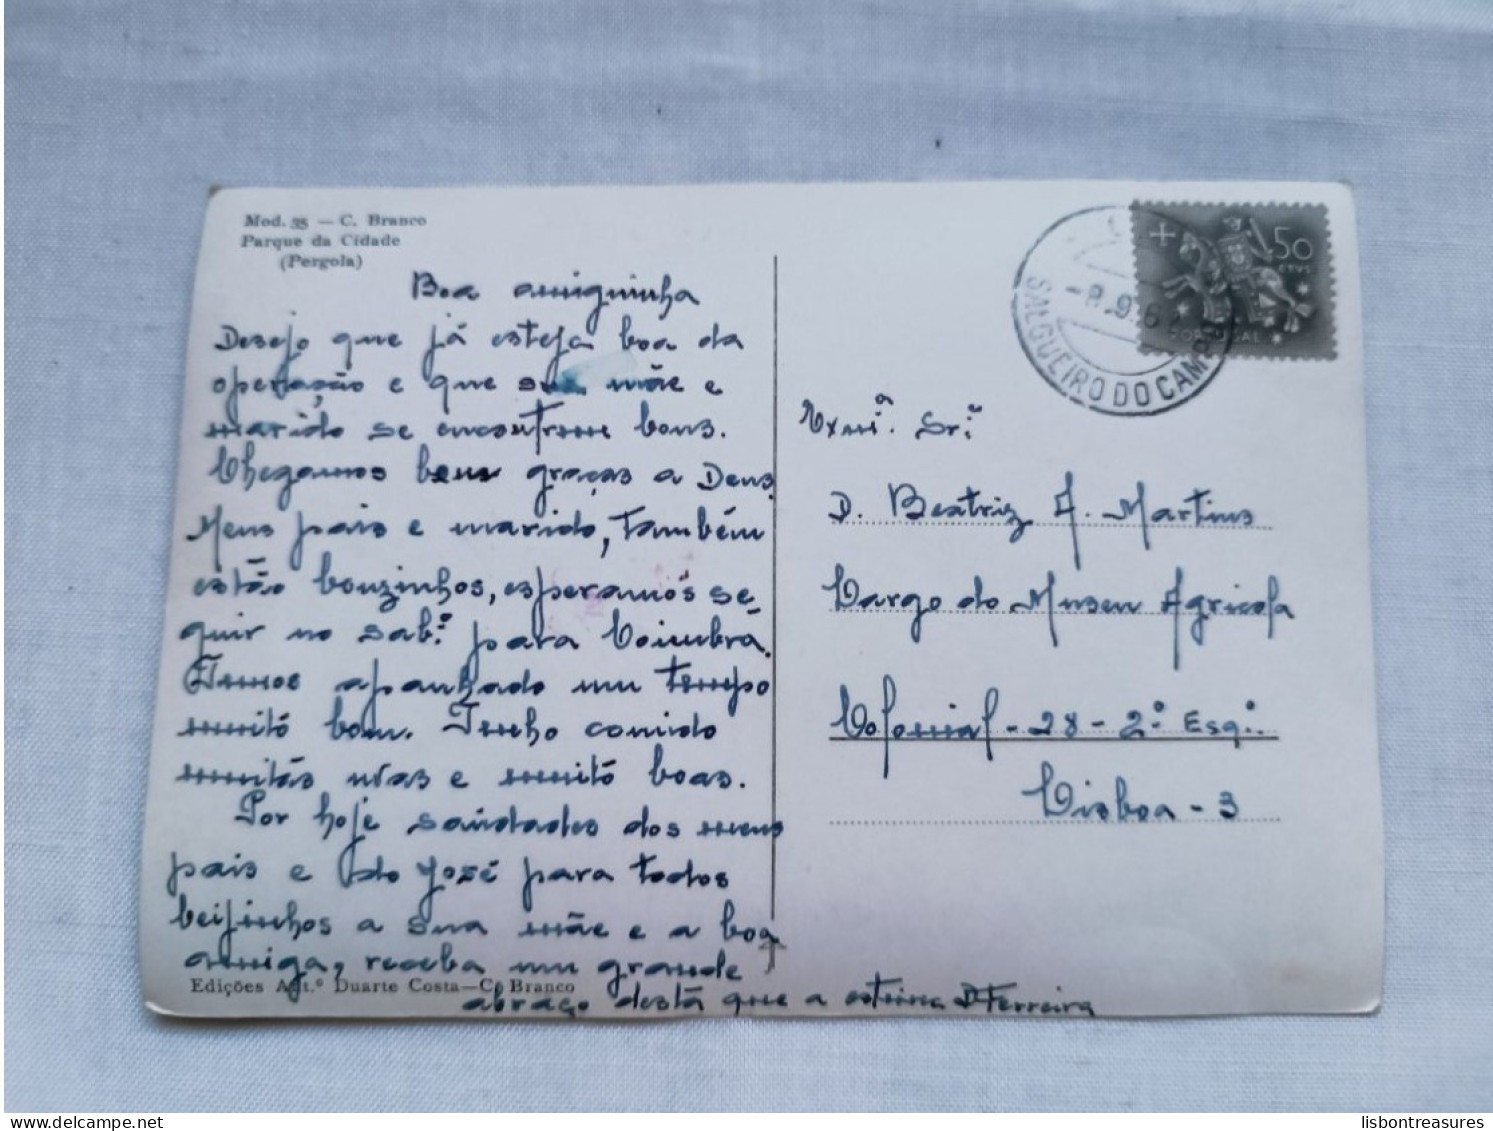 Mod. 35 — C. Branco
Parque da Cidade
(Pergola)
Boa amiguinha
Desejo que já esteja boa da
operação e que sua mãe e
marido se encontrem bons.
Chegamos bem graças a Deus.
Meus pais e marido, também
estão bonzinhos, esperamos se-
guir no sab.º para Coimbra.
Temos apanhado um tempo
muitó bom. Tenho comido
muitas uvas e muitó boas.
Por hoje saúdades dos meus
pais e do José para todos
beijinhos a sua mãe e a boa
amiga, receba um grande
abraço destá que a estima D Ferreira
Edições Ant.º Duarte Costa—C. Branco
50
CTVS
PORTUGAL
-8.9.6
SALGUEIRO DO CAMPO
Exmª. Srª.
D. Beatriz A. Martins
Largo do Museu Agricola
Colonial - 28 - 2º Esqº.
Lisboa - 3
lisbontreasures
delcampe.net